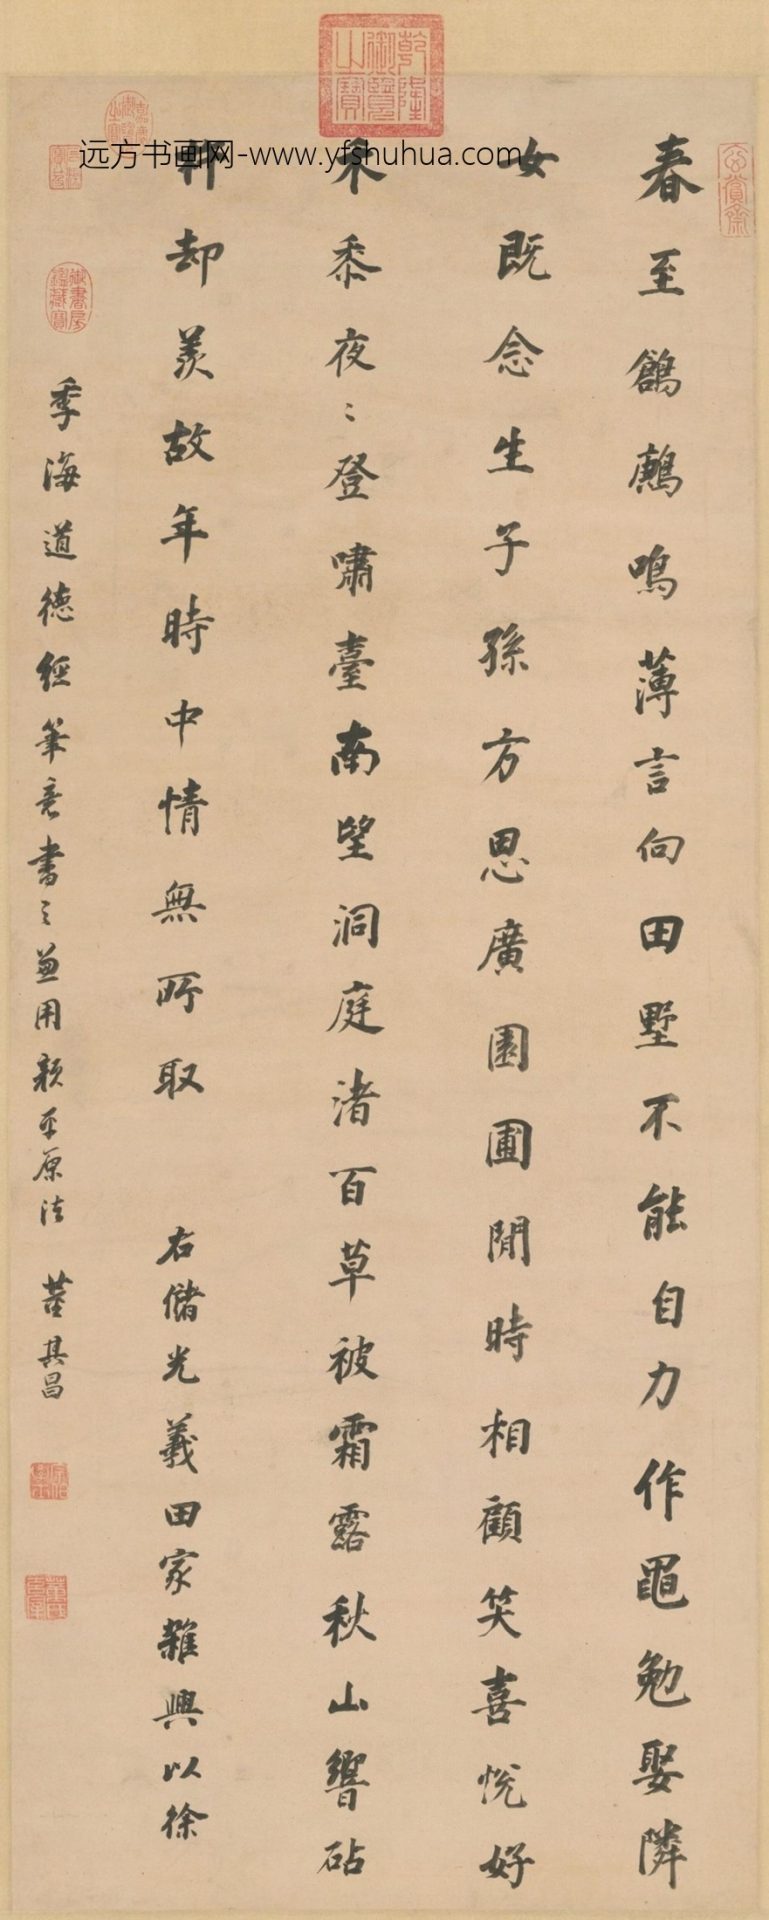 远方书画网-www.yfshuhua.com
乾隆御覽之寶
玄賞齋
春至鶬鶊鳴薄言向田墅不能自力作黽勉娶隣
女既念生子孫方思廣園圃閒時相顧笑喜悅好
禾黍夜〻登嘯臺南望洞庭渚百草被霜露秋山響砧
杵却羨故年時中情無所取 右儲光羲田家雜興以徐
季海道德經筆意書之兼用顏平原法 董其昌
嘉慶御覽之寶
御書房鑑藏寶